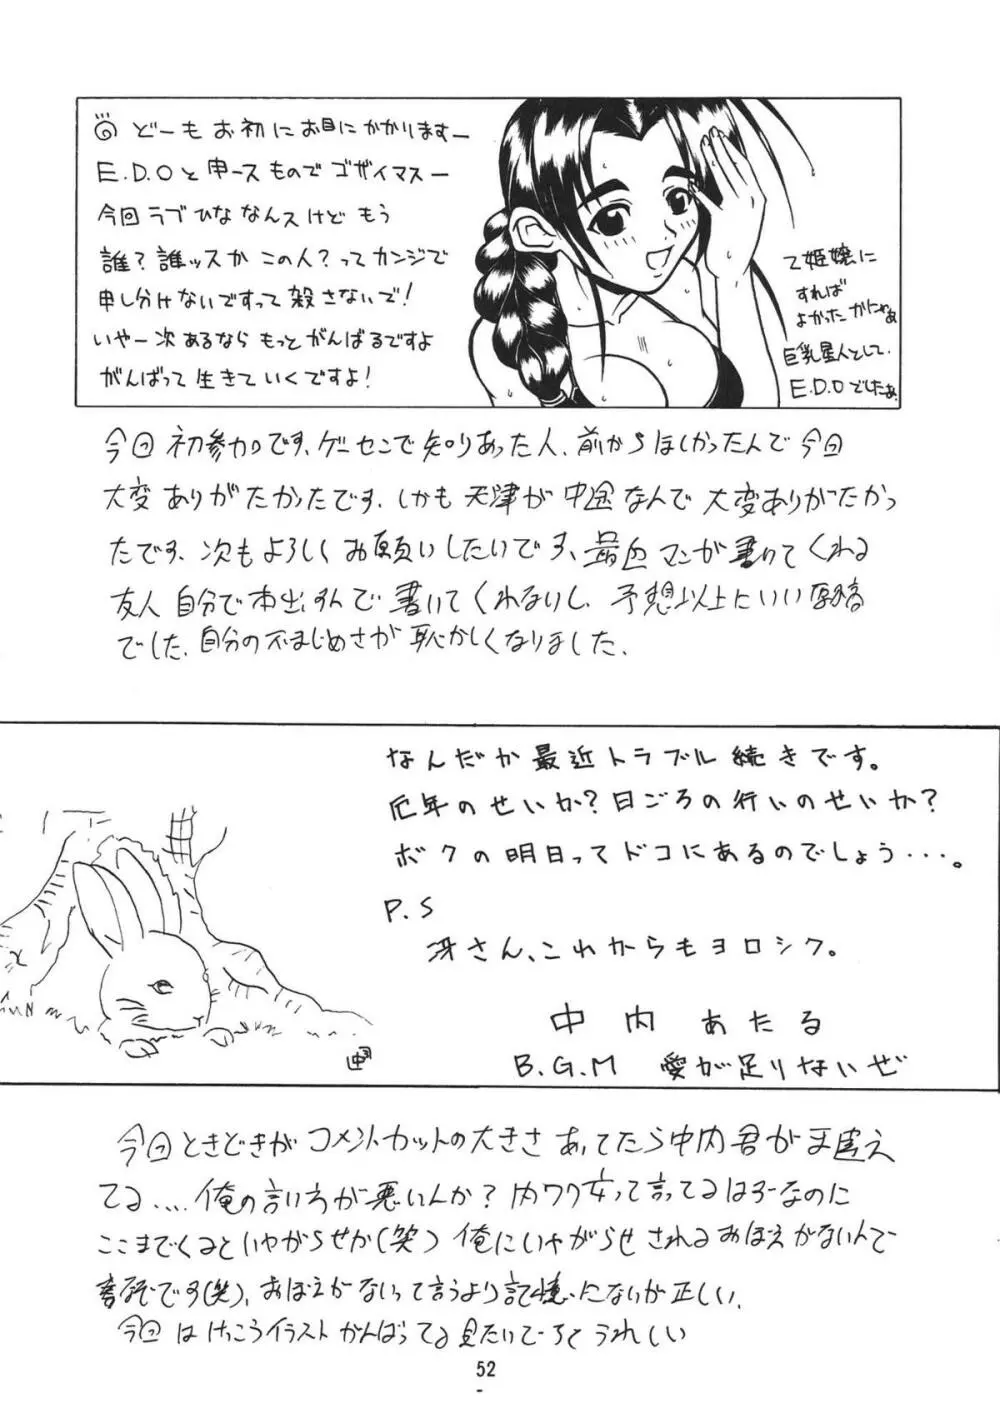 どーもお初にお目にかかりますー
E.D.Oと申ース ものでゴザイマスー
今回ラブひななんスけど もう
誰?誰ッスか この人?ってカンジで
申し分けないですって殺さないで!
いやー次あるなら もっとがんばるですよ
がんばって生きていくですよ!
乙姫嬢に
すれば
よかったかにゃあ
巨乳星人として.
E.D.Oでしたぁ.
今回初参加です、ゲーセンで知りあった人、前からほしかったんで今回
大変ありがたかったです、しかも天津が中途なんで大変ありがたかっ
たです、次もよろしくお願いしたいです、最近マンガ書いてくれる
友人自分で本出すんで書いてくれないし、予想以上にいい原稿
でした、自分の不まじめさが恥かしくなりました、
なんだか最近トラブル続きです。
厄年のせいか?日ごろの行いのせいか?
ボクの明日ってドコにあるのでしょう・・・。
P.S
冴さん、これからもヨロシク。
中内 あたる
B.G.M 愛が足りないぜ
今回ときどきがコメントカットの大きさあってたら中内君がまちがえ
てる....俺の言い方が悪いんか?内ワク
って言ってるはずなのに
ここまでくるといやがらせか(笑) 俺にいやがらせされるおぼえがないんで
なぞです(笑)、おぼえがないって言うより記憶にないが正しい、
今回はけっこうイラストがんばってる見たいでちとうれしい
52